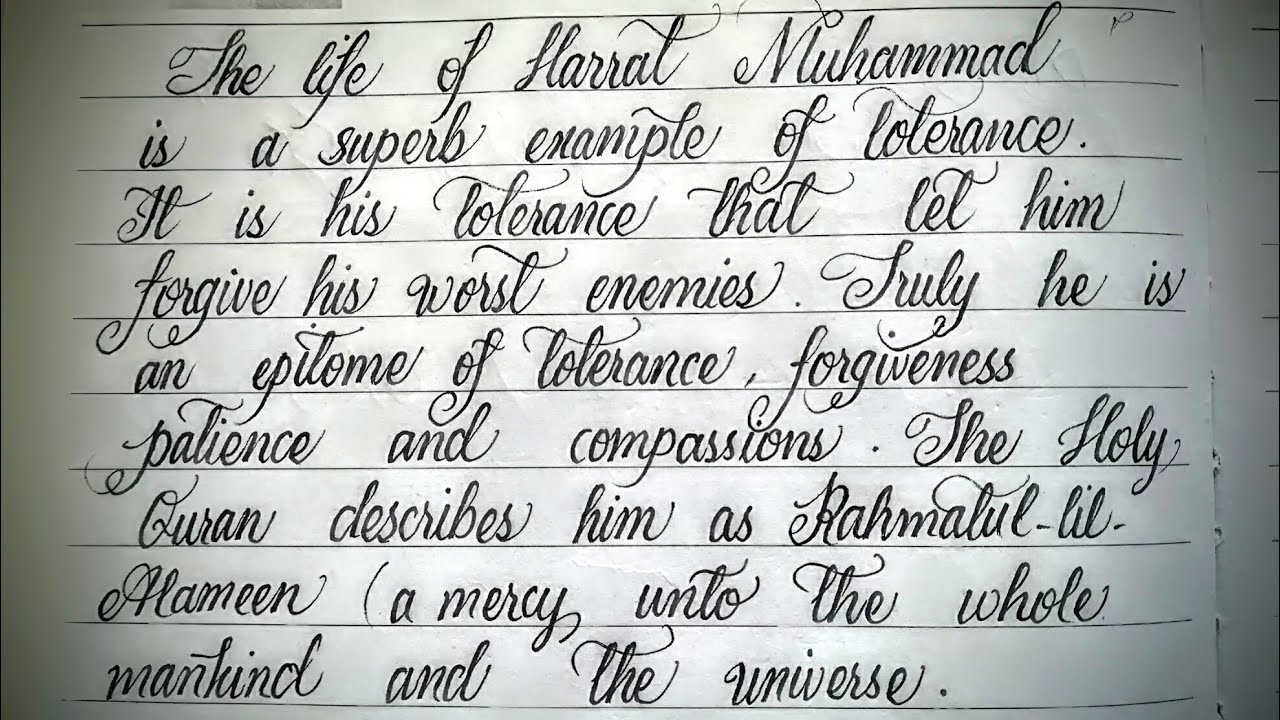 The life of Harrat Muhammad
is a superb example of tolerance.
It is his tolerance that let him
forgive his worst enemies. Truly he is
an epitome of tolerance, forgiveness
patience and compassions. The Holy
Quran describes him as Rahmatul-lil-
Alameen (a mercy unto the whole
mankind and the universe.